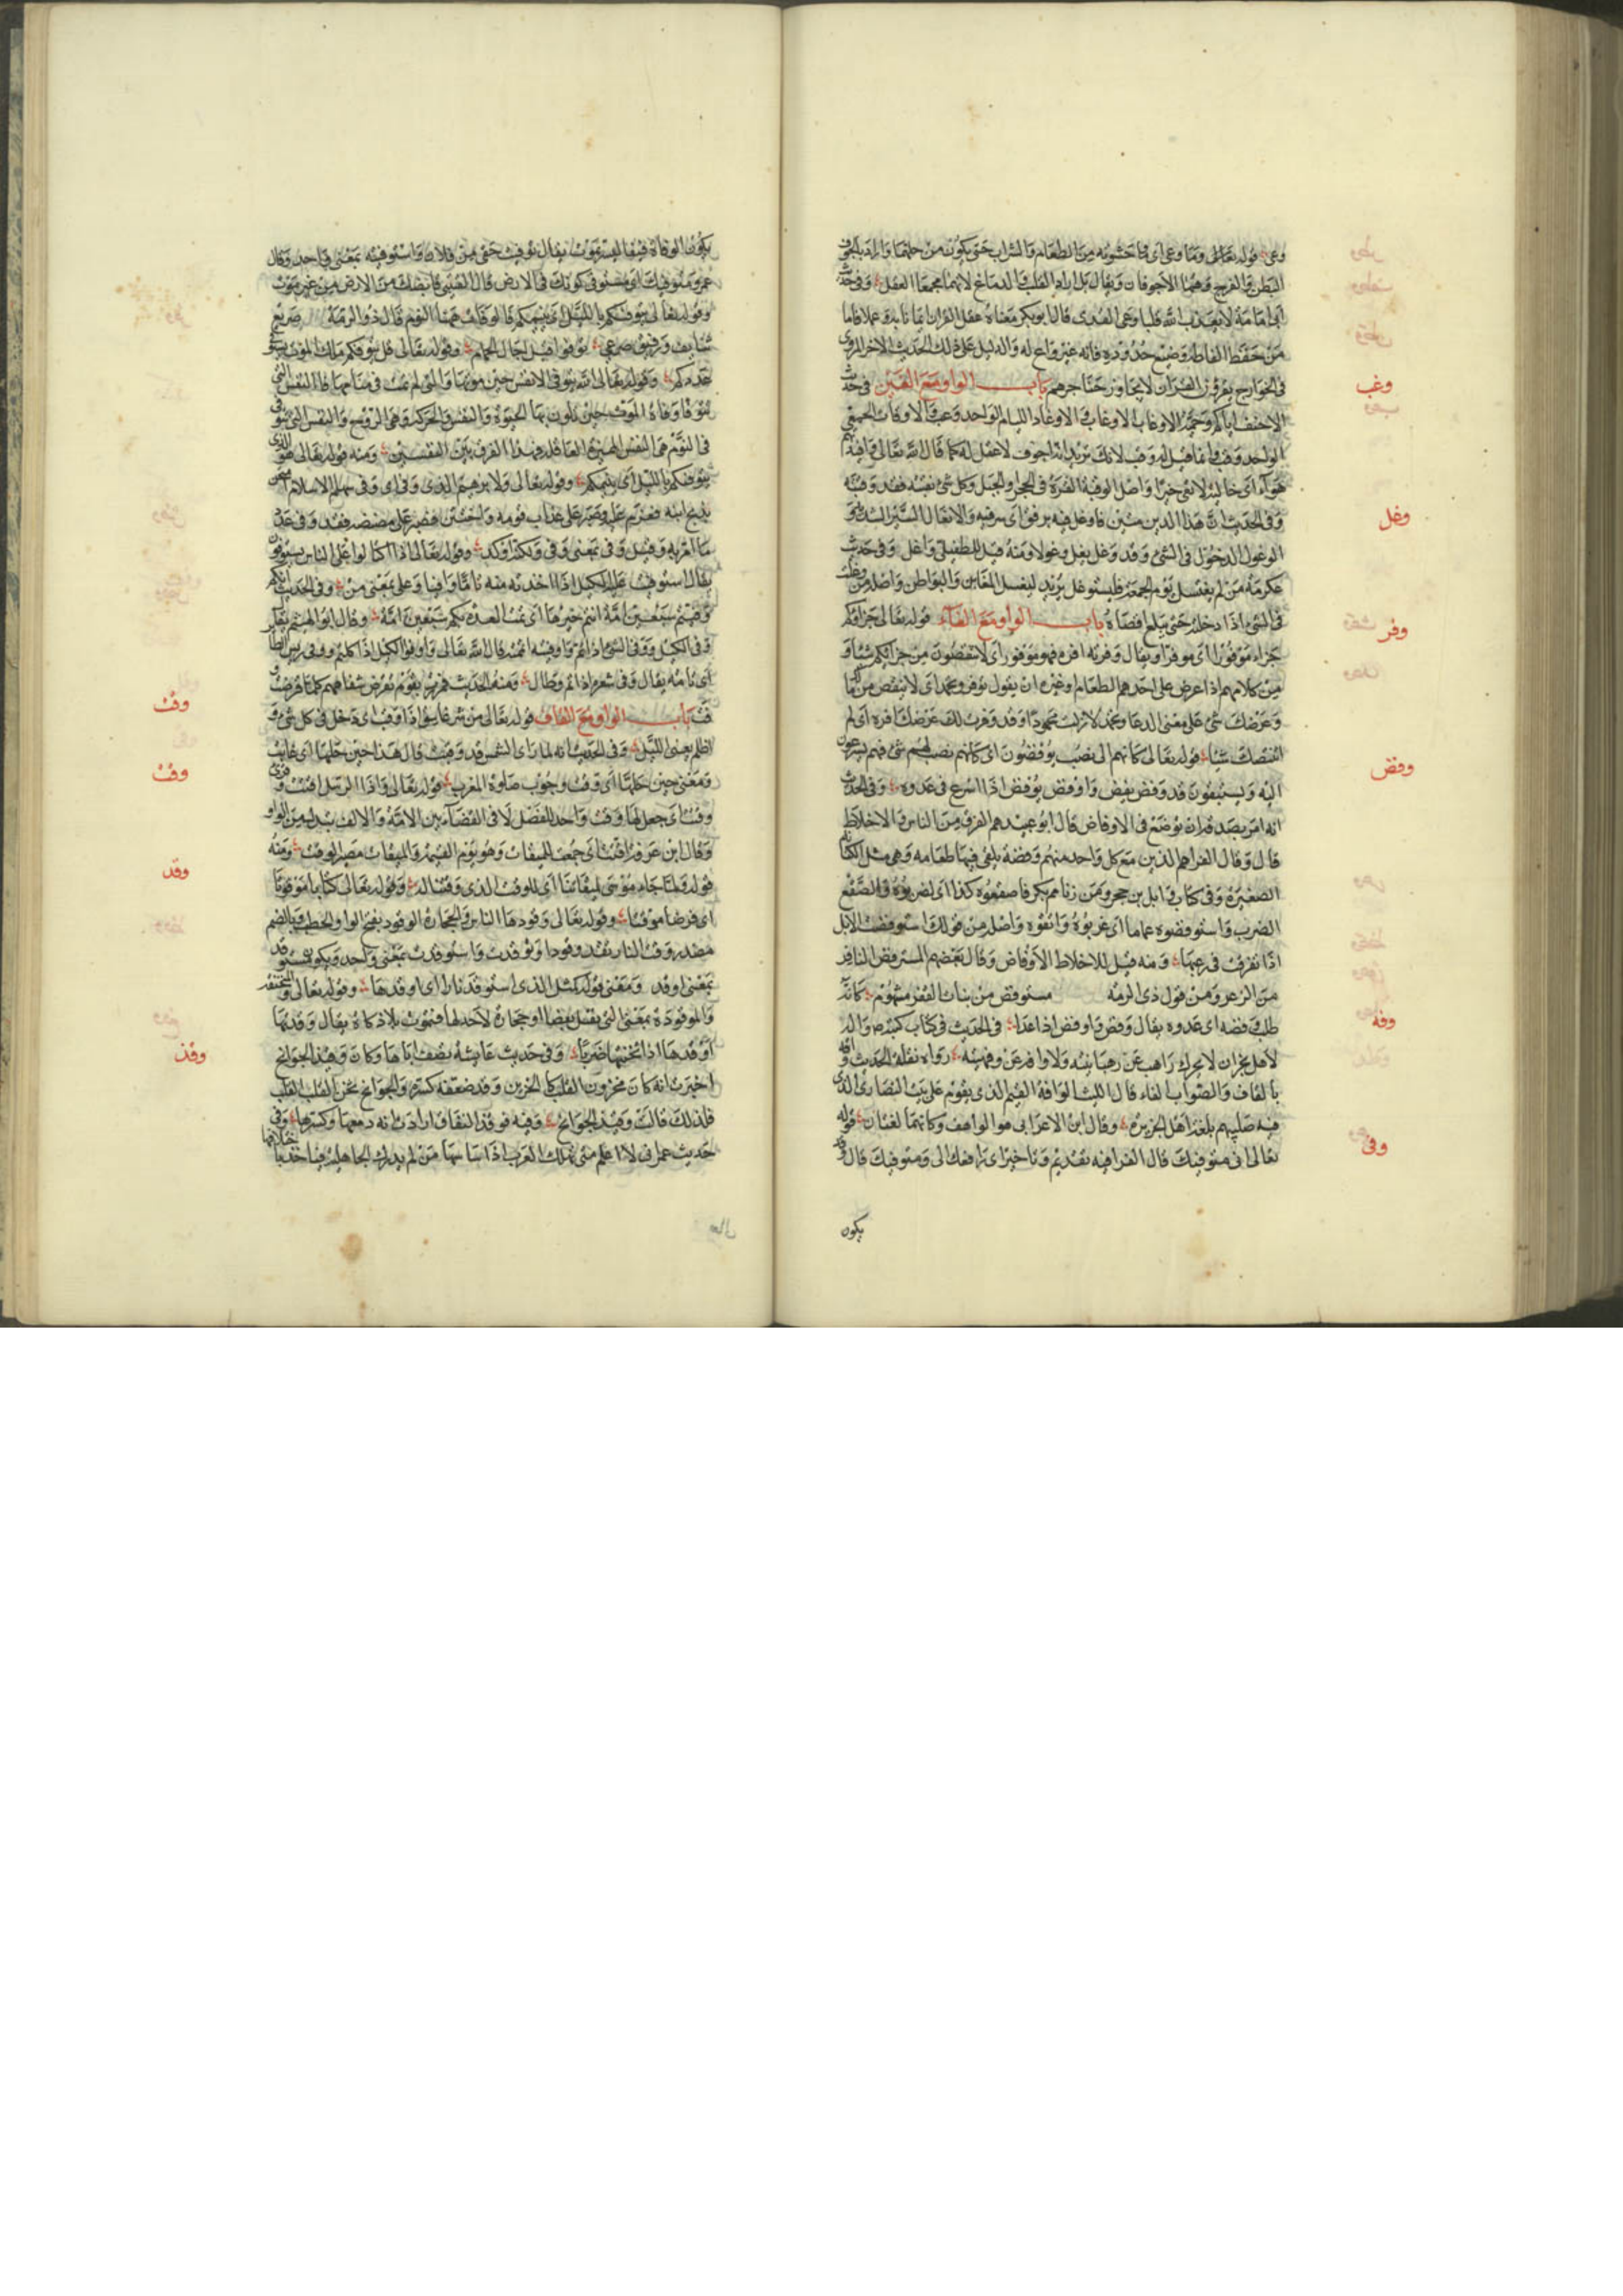 وعى قوله تعالى وما وعى اى ما حشوته من الطعام والشراب حتى يكون من حلهما واراد بالجوف
البطن والفرج وهما الاجوفان ويقال بل اراد القلب والدماغ لانهما مجمعا العقل وفى حديث
ابى امامة لا يعذب الله قلبا وعى القران قال ابو بكر معناه عقل القران ايمانا به وعملا فاما
من حفظ الفاظه وضيع حدوده فانه غير واع له والدليل على ذلك الحديث الاخر المروى
فى الخوارج يقرؤن القران لا يجاوز حناجرهم باب الواو مع الغين فى حديث
وغب
الاحنف اياكم وحمية الاوغاب الاوغاب والاوغاد الليام الواحد وغب والاوقاب الحمقى
الواحد وقب وانما قيل له وقب لانك تريد انه اجوف لا عقل له كما قال الله تعالى وافئدتهم
هواء اى خالية لا تعى خيرا واصل الوقبة النقرة فى الحجر والجبل وكل شئ نقبته فقد وقبته
وغل
وفى الحديث ان هذا الدين متين فاوغل فيه برفق اى سر فيه والايغال السير الشديد
الوغول الدخول فى الشئ وقد وغل يغل وغولا ومنه قيل للطفيلى واغل وفى حديث
عكرمة من لم يغتسل يوم الجمعة فليستوغل يريد ليغسل المغابن والبواطن واصله من وغلت
فى الشئ اذا دخلته حتى تبلغ اقصاه باب الواو مع الفاء قوله تعالى جزاؤكم
وفر
جزاء موفورا اى موفرا ويقال وفرته افره فهو موفور اى لا تنقصون من جزائكم شيئا و
من كلامهم اذا عرض على احدهم الطعام او غيره ان يقول توفر وتحمد اى لا ينقص من مالك
وعرضك شئ على معنى الدعا وتحمد لا زلت محمودا وقد وفرت لك عرضك افره اى لم
انتقصك شيئا قوله تعالى كانهم الى نصب يوفضون اى كانهم نصب لهم شئ فهم يسرعون
وفض
اليه ويستبقون وقد وفض يفض واوفض يوفض اذا اسرع فى عدوه وفى الحديث
انه امر بصدقة ان توضع فى الاوفاض قال ابو عبيد هم الفرق من الناس والاخلاط
قال وقال الفرا هم الذين مع كل واحد منهم وفضة يلقى فيها طعامه وهى مثل الكنانة
الصغيرة وفى كتاب وائل بن حجر ومن زنا مم بكر فاصقعوه كذا اى اضربوه والصقع
الضرب واستوفضوه عاما اى غربوه وانفوه واصله من قولك استوفضت الابل
اذا تفرقت فى رعيها ومنه قيل للاخلاط الاوفاض وقال بعضهم المستوفض النافر
من الذعر ومن قول ذى الرمه مستوفض من بنات القفر مشهوم كانه
وفه
طلب وفضه اى عدوه يقال وفض واوفض اذا عدا فى الحديث فى كتاب كتبه صلى الله
لاهل نجران لا يحرك راهب عن رهبانيته ولا وافه عن وفهيته رواه نقلة الحديث واقه
بالقاف والصواب الفاء قال الليث الوافه القيم الذى يقوم على بيت النصارى الذى
فيه صليبهم بلغة اهل الجزيرة وقال ابن الاعرابى هو الواهف وكانهما لغتان قوله
وفى
تعالى انى متوفيك قال الفرا فيه تقديم وتاخير اى رافعك الى ومتوفيك قال وقد
يكون
يكون الوفاة قبضا ليس بموت يقال توفيت حقى من فلان واستوفيته بمعنى واحد وقال
غيره متوفيك اى مستوفى كونك فى الارض قال القتيبى قابضك من الارض من غير موت
وقوله تعالى يتوفيكم بالليل اى ينيمكم فالوفاة ههنا النوم قال ذو الرمة صريع
تنايف ورفيق صرعى توفوا قبل اجال الحمام وقوله تعالى قل يتوفيكم ملك الموت يستوفى
عددكم وقوله تعالى الله يتوفى الانفس حين موتها والتى لم تمت فى منامها فالنفس التى
تتوفا وفاة الموت حين تكون بها الحيوة والنفس والحركة وهى الروح والنفس التى تتوفى
فى النوم هى النفس المميزة العاقلة فهذا الفرق بين النفسين ومنه قوله تعالى هو الذى
يتوفيكم بالليل اى ينيمكم وقوله تعالى ولابرهيم الذى وفى اى وفى سهام الاسلام امتحن
بذبح ابنه فعزم عليه وصبر على عذاب قومه واختتن فصبر على مضضه فقد وفى عدد
ما امر به وقيل وفى بمعنى وفى ولكنه اوكد وقوله تعالى اذا اكتالوا على الناس يستوفون
يقال استوفيت عليه الكيل اذا اخذته منه تاما وافيا وعلى بمعنى من وفى الحديث انكم
وفيتم سبعين امة انتم خيرها اى تمت العدة بكم سبعين امة وقال ابو الهيثم يقال
وفى الكيل ووفى الشئ اذا تم واوفيته اتممته قال الله تعالى واوفوا الكيل اذا كلتم ووفى ريش الطائر
اى تامه يقال وفى شعره اذا تم وطال ومنه الحديث فمررت بقوم تقرض شفاههم كلما قرضت
وقب
وفت باب الواو مع القاف قوله تعالى من شر غاسق اذا وقب اى دخل فى كل شئ و
اظلم يعنى الليل وفى الحديث انه لما راى الشمس قد وقبت قال هذا حين حلها اى غابت
وقت
ومعنى حين حلها اى وقت وجوب صلوة المغرب قوله تعالى واذا الرسل اقتت وقرئ
وقتت اى جعل لها وقت واحد للفصل فى القضآء بين الامة والالف بدل من الواو
وقال ابن عرفة اقتت اى جمعت للميقات وهو يوم القيمة والميقات مصير الوقت ومنه
وقد
قوله ولما جاء موسى لميقاتنا اى للوقت الذى وقتنا له وقوله تعالى كتابا موقوتا
اى فرضا موقتا وقوله تعالى وقودها الناس والحجارة الوقود بفتح الواو الحطب وبالضم
مصدر وقدت النار تقد وقودا وتوقدت واستوقدت بمعنى واحد ويكون استوقد
بمعنى اوقد ومعنى قوله كمثل الذى استوقد نارا اى اوقدها وقوله تعالى والمنخنقة
والموقوذة بمعنى التى تقتل بعصا او حجارة لا حد لها فتموت بلا ذكاة يقال وقذتها
وقذ
اقذها اذا اثخنتها ضربا وفى حديث عايشه تصف اباها وكان وقيذ الجوانح
اخبرت انه كان محزون القلب كان الحزن وقد ضعفه كسره والجوانح تجن القلب
فلذلك قالت وقيذ الجوانح وفيه فوقذ النفاق ارادت انه دمغها وكسرها وفى
حديث عمر انى لاعلم متى تهلك العرب اذا ساسها من لم يدرك الجاهلية فياخذ باخلاقها